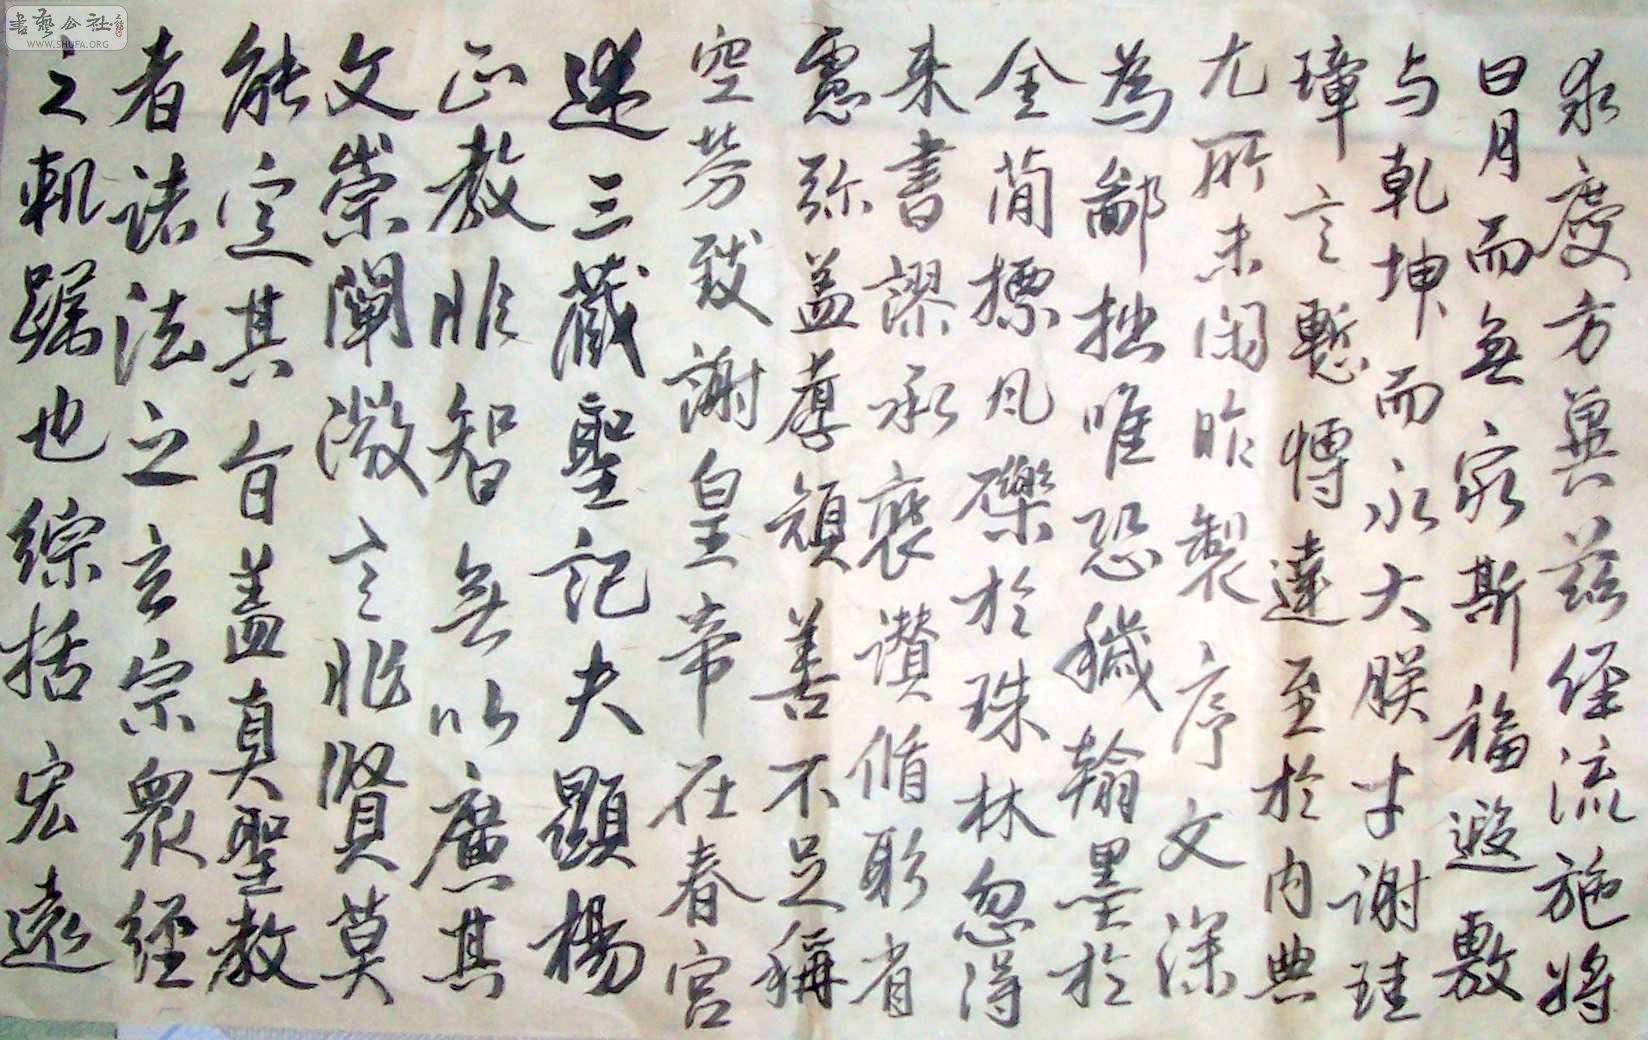 書藝公社
WWW.SHUFA.ORG
永慶方冀茲經流施將
日月而無窮斯福遐敷
与乾坤而永大朕才謝珪
璋言慙博達至於內典
尤所未閑昨製序文深
為鄙拙唯恐穢翰墨於
金簡摽凡礫於珠林忽得
来書謬承褒讚脩躬省
慮弥盖厚頑善不足稱
空勞致謝皇帝在春宮
述三藏聖記夫顯楊
正教非智無以廣其
文崇闡微言非賢莫
能定其旨盖真聖教
者諸法之玄宗眾經
之軌躅也綜括宏遠